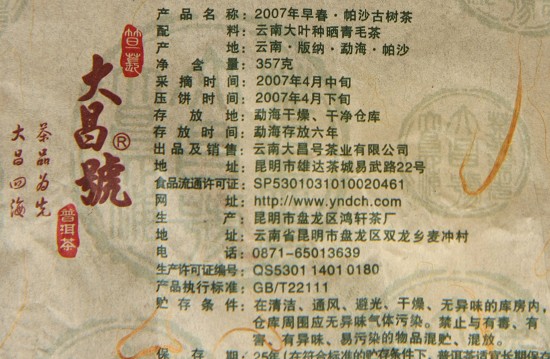 产品名称：2007年早春·帕沙古树茶
配料：云南大叶种晒青毛茶
产地：云南·版纳·勐海·帕沙
净含量：357克
采摘时间：2007年4月中旬
压饼时间：2007年4月下旬
存放地：勐海干燥、干净仓库
存放时间：勐海存放六年
出品及销售：云南大昌号茶业有限公司
地址：昆明市雄达茶城易武路22号
食品流通许可证：SP5301031010020461
网址：http://www.yndch.com
生产：昆明市盘龙区鸿轩茶厂
地址：云南省昆明市盘龙区双龙乡麦冲村
电话：0871-65013639
生产许可证编号：QS5301 1401 0180
产品执行标准：GB/T22111
贮存条件：在清洁、通风、避光、干燥、无异味的库房内，
仓库周围应无异味气体污染。禁止与有毒、有
害、有异味、易污染的物品混贮、混放。
保存期：25年(在符合标准的贮存条件下，普洱茶适宜长期保存
大昌號®
茶品为先
大昌四海
普洱茶